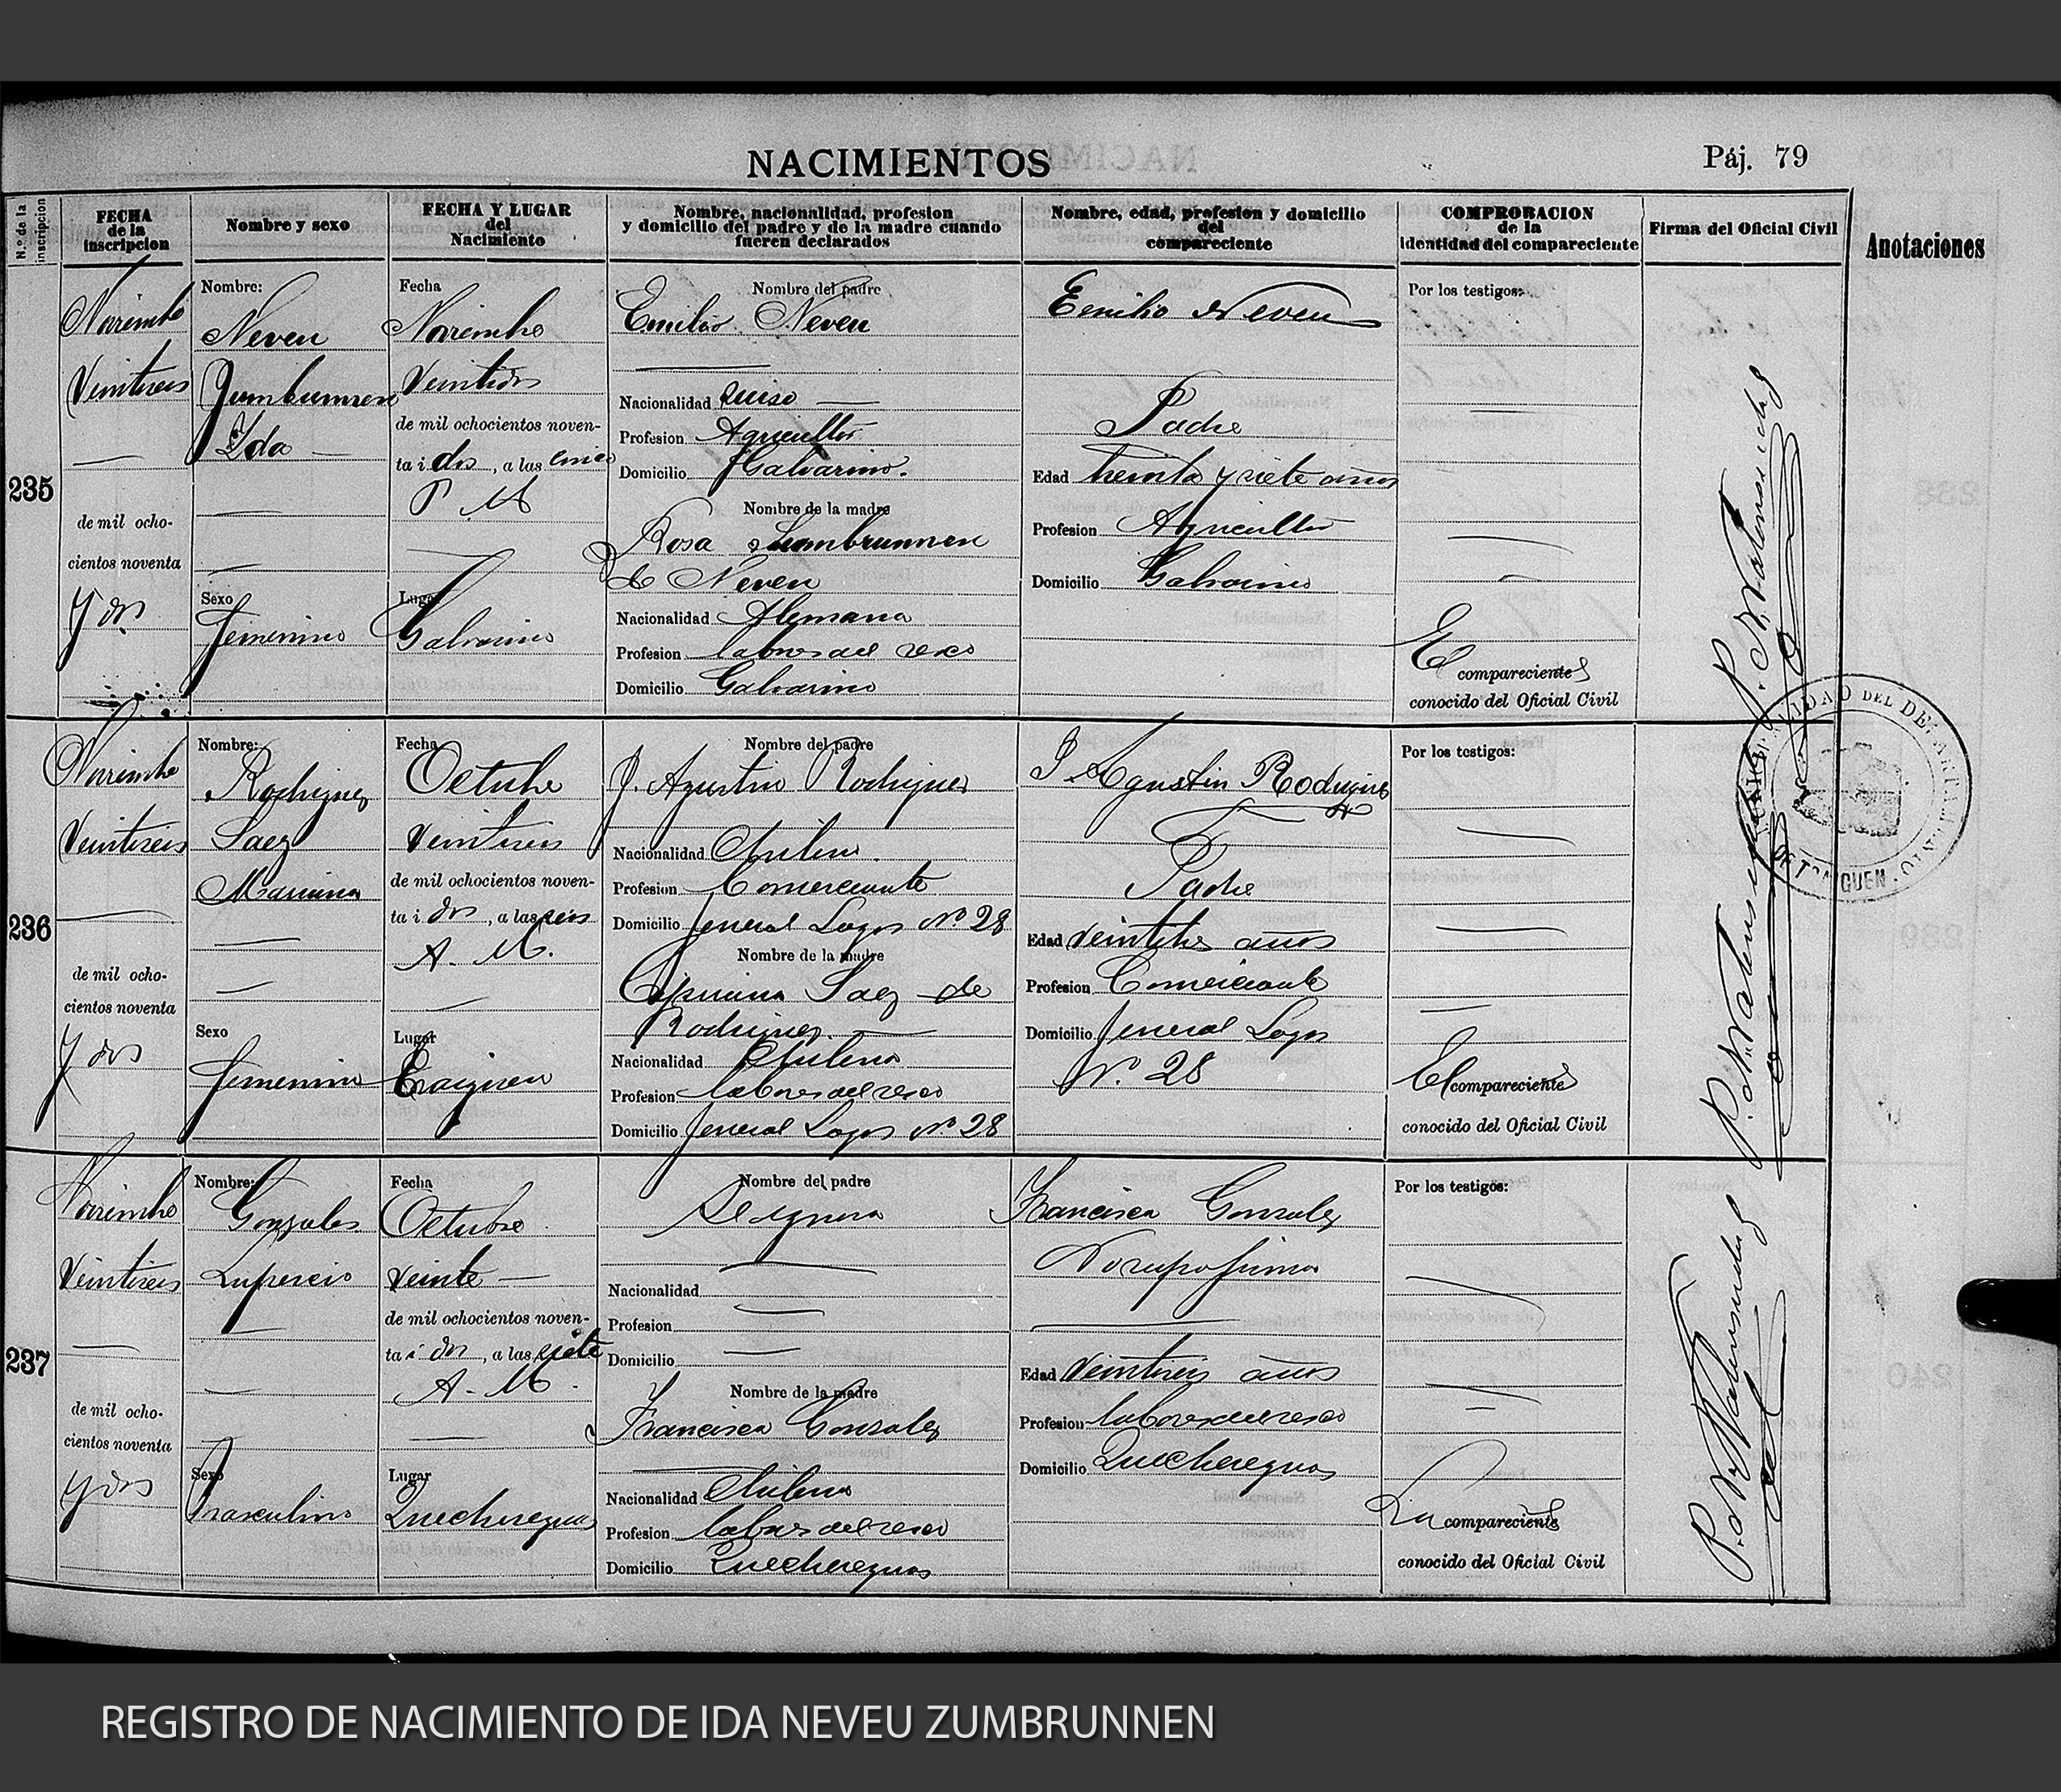 NACIMIENTOS
Páj. 79
N.º de la inscripcion
FECHA
de la
inscripcion
Nombre y sexo
FECHA Y LUGAR
del
Nacimiento
Nombre, nacionalidad, profesion
y domicilio del padre y de la madre cuando
fueren declarados
Nombre, edad, profesion y domicilio
del
compareciente
COMPROBACION
de la
identidad del compareciente
Firma del Oficial Civil
Anotaciones
235
Noviembre
Veintiseis
de mil ocho-
cientos noventa
y dos
Nombre:
Neveu
Zumbrunnen
Ida
Sexo
Femenino
Fecha
Noviembre
Veintidos
de mil ochocientos noven-
ta i dos, a las cinco
P M
Lugar
Galvarino
Nombre del padre
Emilio Neveu
Nacionalidad Suiso
Profesion Agricultor
Domicilio Galvarino.
Nombre de la madre
Rosa Zumbrunnen
de Neveu
Nacionalidad Alemana
Profesion labores del sexo
Domicilio Galvarino
Emilio Neveu
Padre
Edad treinta y siete años
Profesion Agricultor
Domicilio Galvarino
Por los testigos:
El
compareciente es
conocido del Oficial Civil
236
Noviembre
Veintiseis
de mil ocho-
cientos noventa
y dos
Nombre:
Rodriguez
Saez
Sexo
Femenino
Fecha
Octubre
Veintiseis
de mil ochocientos noven-
ta i dos, a las seis
A. M.
Lugar
Traiguen
Nombre del padre
J. Agustin Rodriguez
Nacionalidad Chileno
Profesion Comerciante
Domicilio Jeneral Lagos Nº 28
Nombre de la madre
Saez de
Rodriguez
Nacionalidad Chilena
Profesion labores del sexo
Domicilio Jeneral Lagos Nº 28
J Agustin Rodriguez
Padre
Edad Veintitres años
Profesion Comerciante
Domicilio Jeneral Lagos
Nº 28
Por los testigos:
El compareciente es
conocido del Oficial Civil
237
Noviembre
Veintiseis
de mil ocho-
cientos noventa
y dos
Nombre:
Gonzalez
Lupercio
Sexo
Masculino
Fecha
Octubre
Veinte
de mil ochocientos noven-
ta i dos, a las siete
A. M.
Lugar
Quechereguas
Nombre del padre
Se ignora
Nacionalidad
Profesion
Domicilio
Nombre de la madre
Francisca Gonzalez
Nacionalidad Chilena
Profesion labores del sexo
Domicilio Quechereguas
Francisca Gonzalez
No supo firmar
Edad Veintiseis años
Profesion labores del sexo
Domicilio Quechereguas
Por los testigos:
La compareciente es
conocido del Oficial Civil
DEL DEPARTAMENTO
DE TRAIGUEN
REGISTRO DE NACIMIENTO DE IDA NEVEU ZUMBRUNNEN